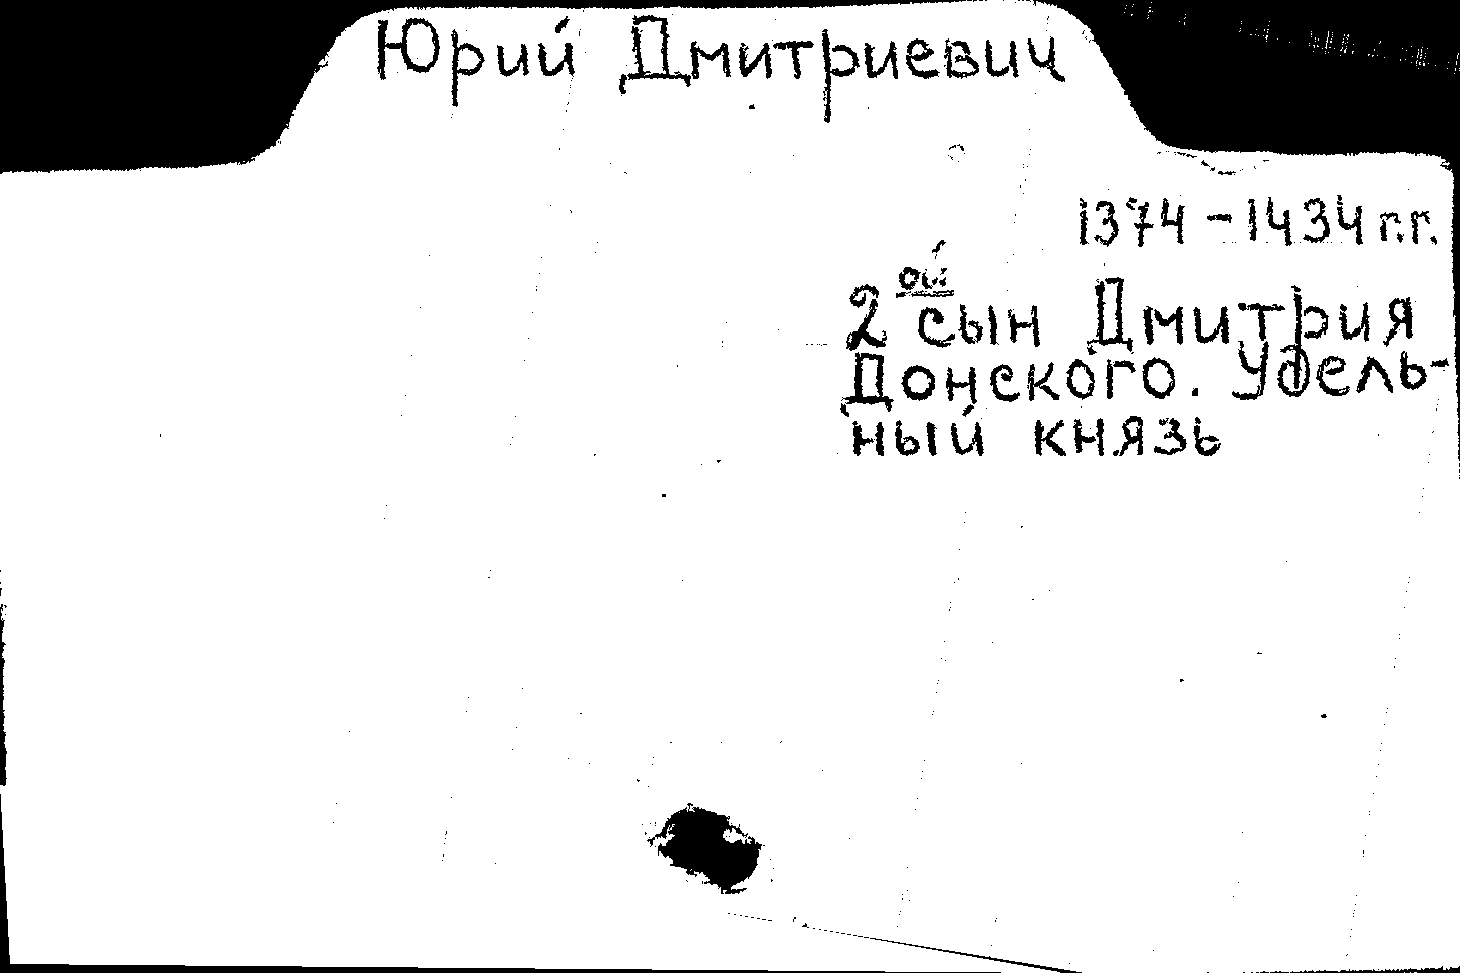 Юрий Дмитриевич
1374 - 1434 г.г.
2ой сын Дмитрия
Донского. Удель-
ный князь